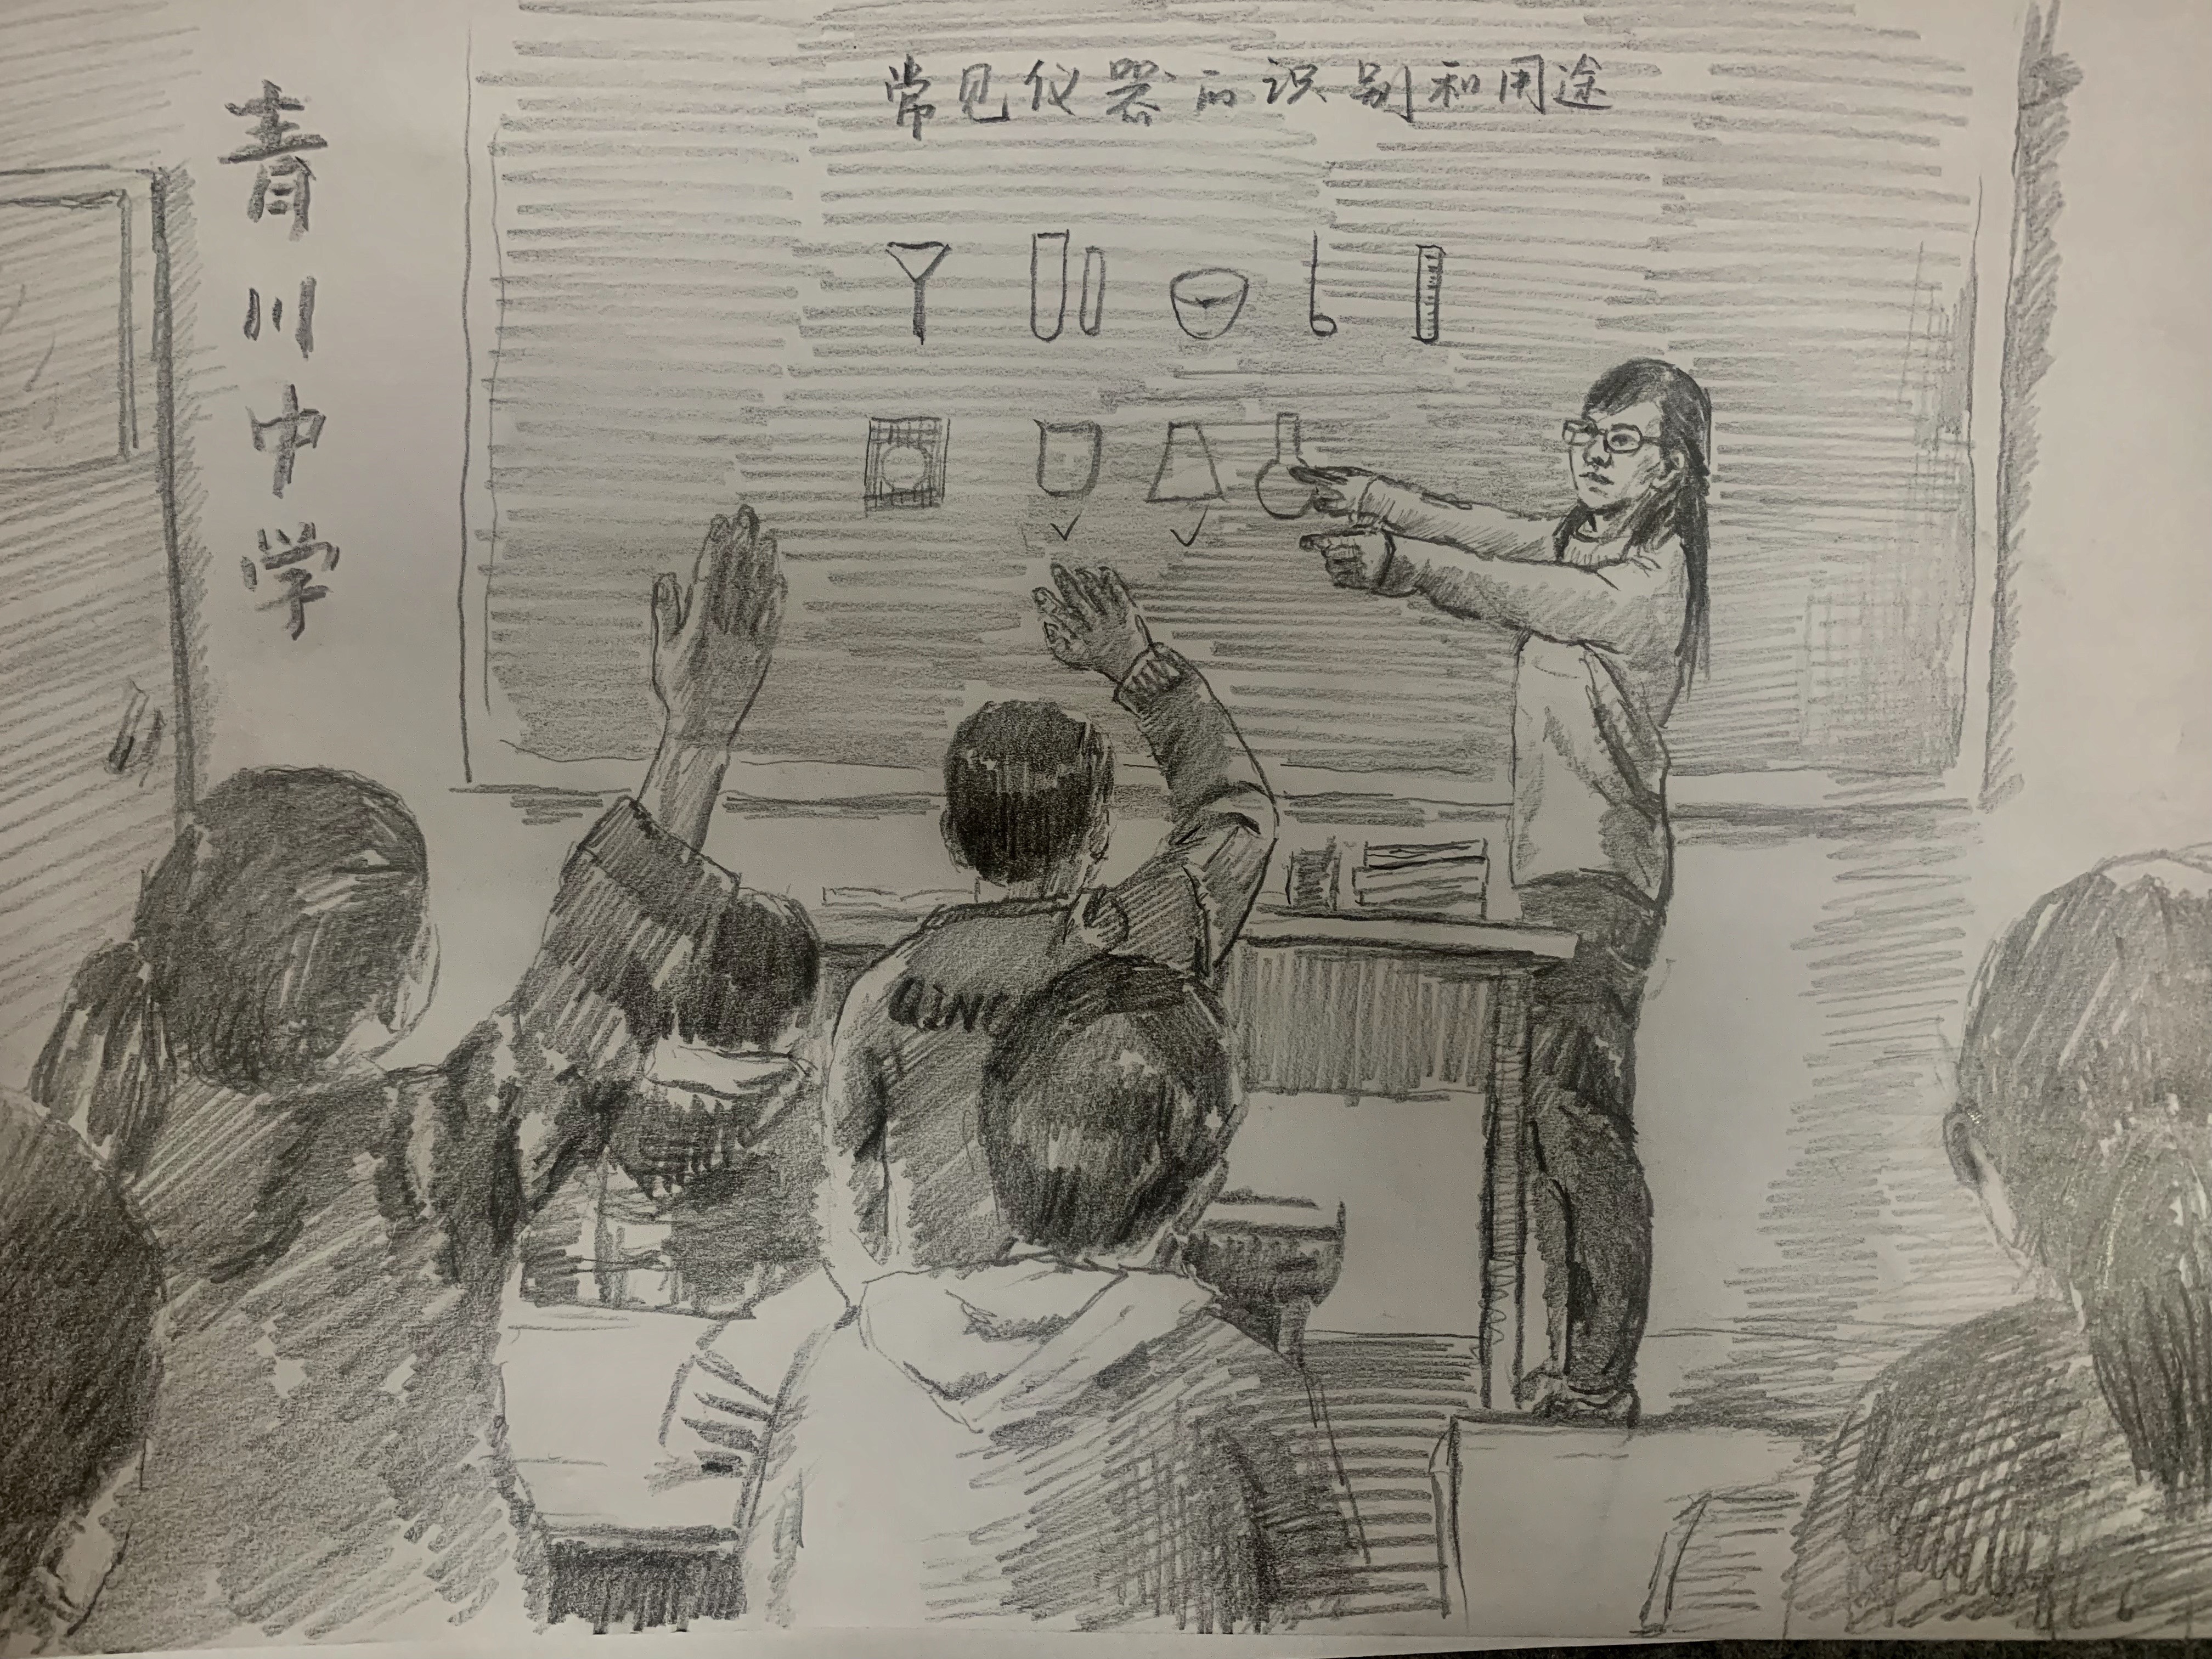 常见仪器的识别和用途
青川中学
QING